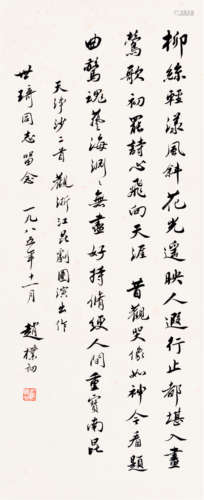 柳絲輕漾風斜花光遥映人遐行止都堪入畫
鶯歌初罷詩心飛向天涯 昔觀哭像如神今看題
曲驚魂藝海淵淵無盡好持脩綆人间重寶南昆
天淨沙二首 觀浙江昆劇團演出作
世琦同志留念
一九八五年十一月 趙樸初